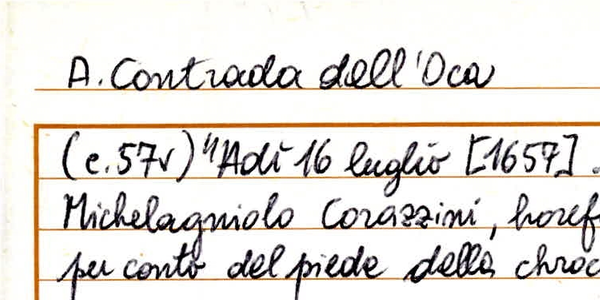 A. Contrada dell'Oca
(c.57v) "Adì 16 luglio [1657].
Michelagniolo Corazzini, horef
per conto del piede della chroc